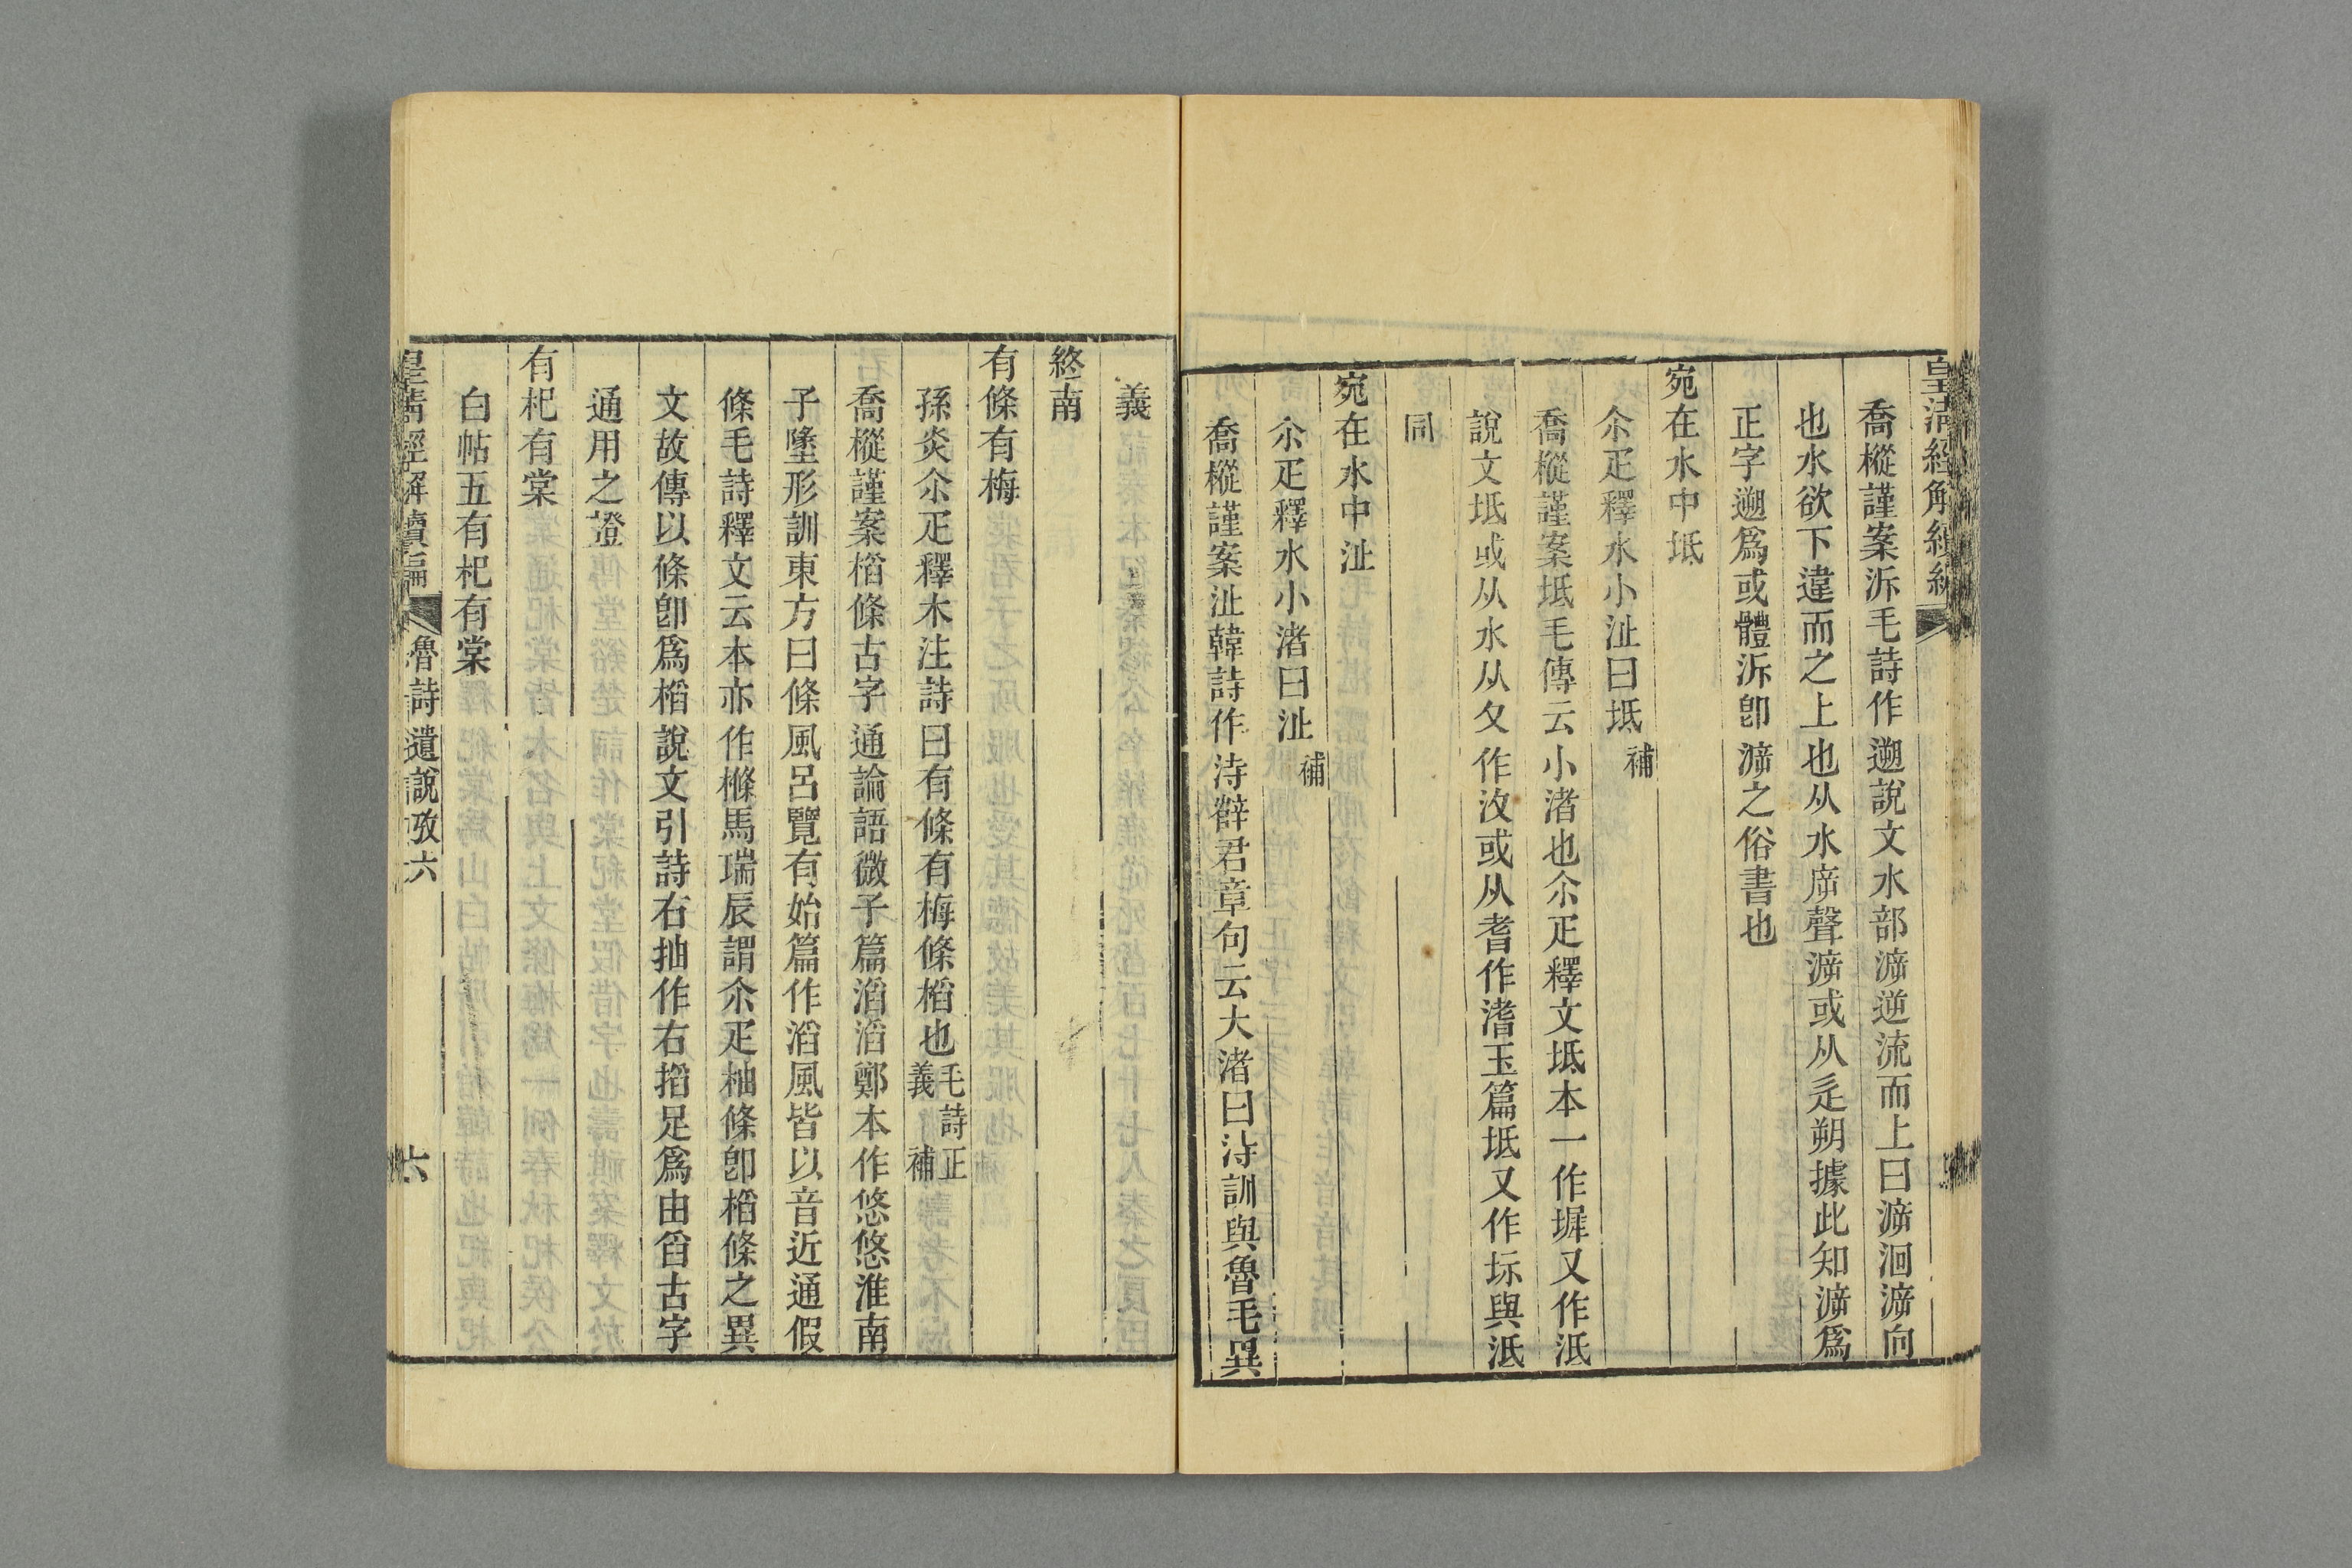 皇清經解續編
喬樅謹案泝毛詩作遡說文水部㴑逆流而上曰㴑洄㴑向
也水欲下違而之上也从水㡿聲㴑或从辵朔據此知㴑爲
正字遡爲或體泝卽㴑之俗書也
宛在水中坻
尒疋釋水小沚曰坻補
喬樅謹案坻毛傳云小渚也尒疋釋文坻本一作墀又作泜
說文坻或从水从夂作汷或从耆作渚玉篇坻又作坘與泜
同
宛在水中沚
尒疋釋水小渚曰沚補
喬樅謹案沚韓詩作洔薛君章句云大渚曰洔訓與魯毛異
義
終南
有條有梅
孫炎尒疋釋木注詩曰有條有梅條槄也毛詩正義補
喬樅謹案槄條古字通論語微子篇滔滔鄭本作悠悠淮南
子墬形訓東方曰條風呂覽有始篇作滔風皆以音近通假
條毛詩釋文云本亦作樤馬瑞辰謂尒疋柚條卽槄條之異
文故傳以條卽爲槄說文引詩右抽作右搯足爲由舀古字
通用之證
有杞有棠
白帖五有杞有棠
皇清經解續編 魯詩遺說攷六 六